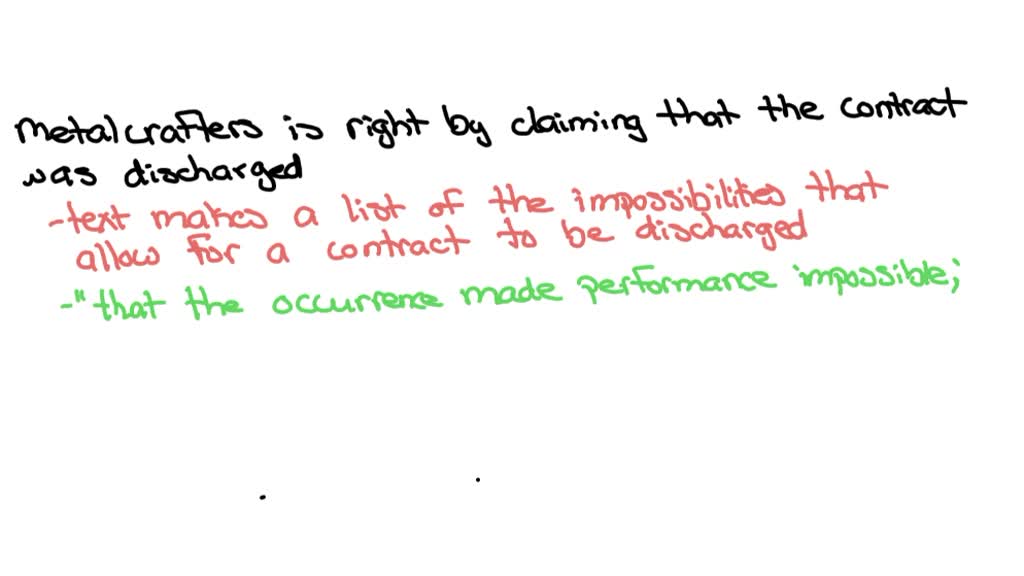 Metalcrafters is right by claiming that the contract
was discharged
-text makes a list of the impossibilities that
allow for a contract to be discharged
-"that the occurrence made performance impossible;